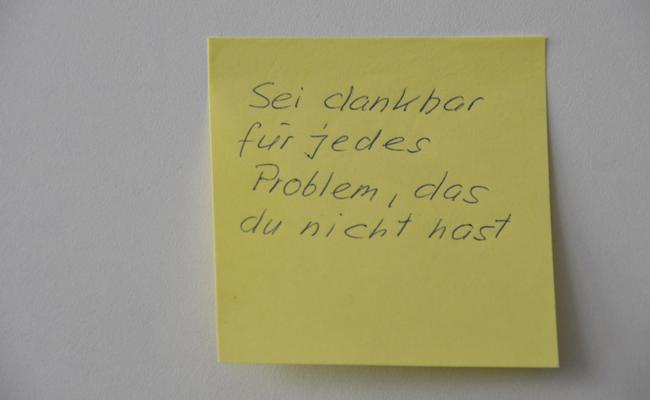 Sei dankbar
für jedes
Problem, das
du nicht hast